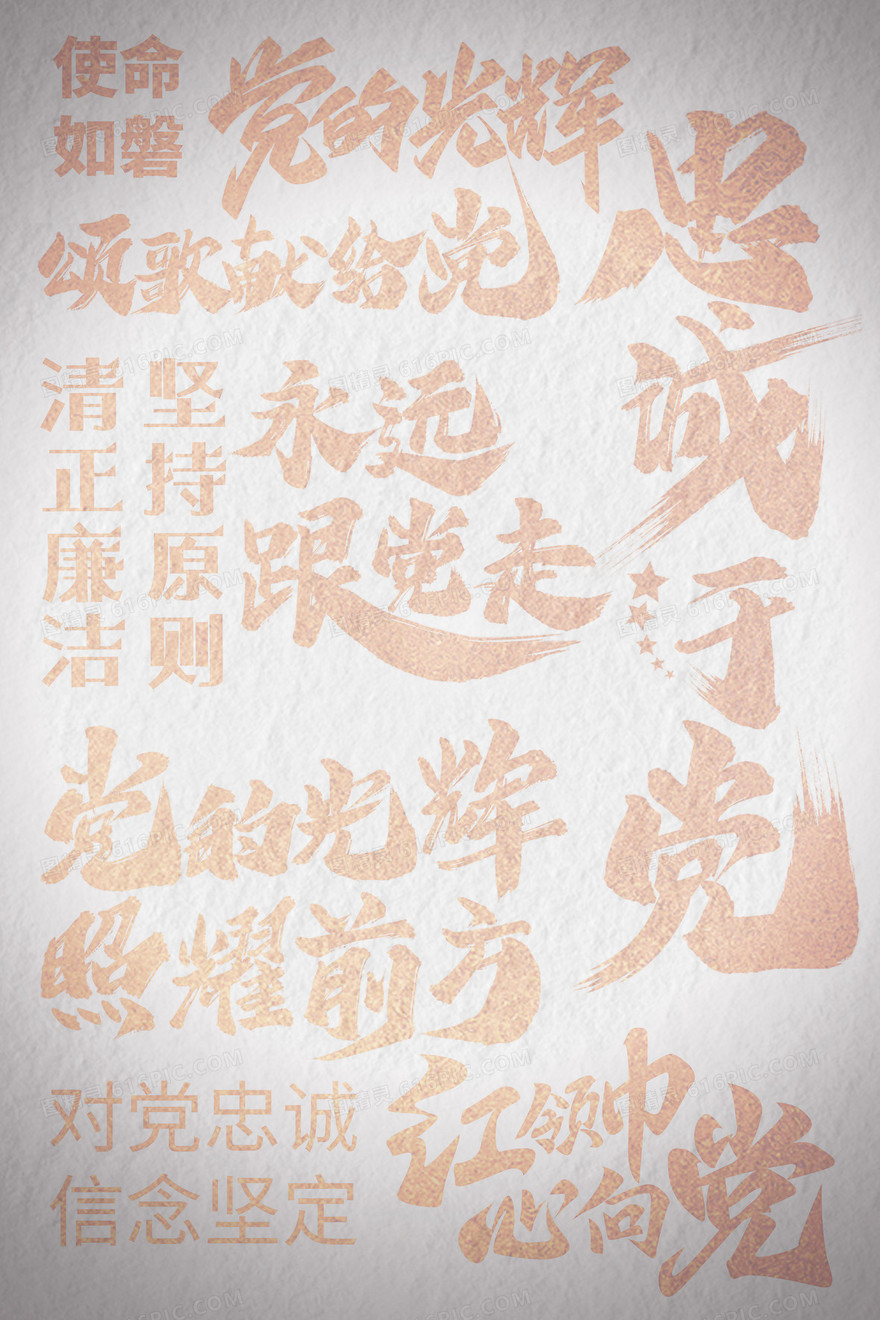 使命
如磐
党的光辉
忠诚于党
颂歌献给党
坚持原则
清正廉洁
永远
跟党走
党的光辉
照耀前方
对党忠诚
信念坚定
红领巾
心向党
图精灵 616PIC.COM